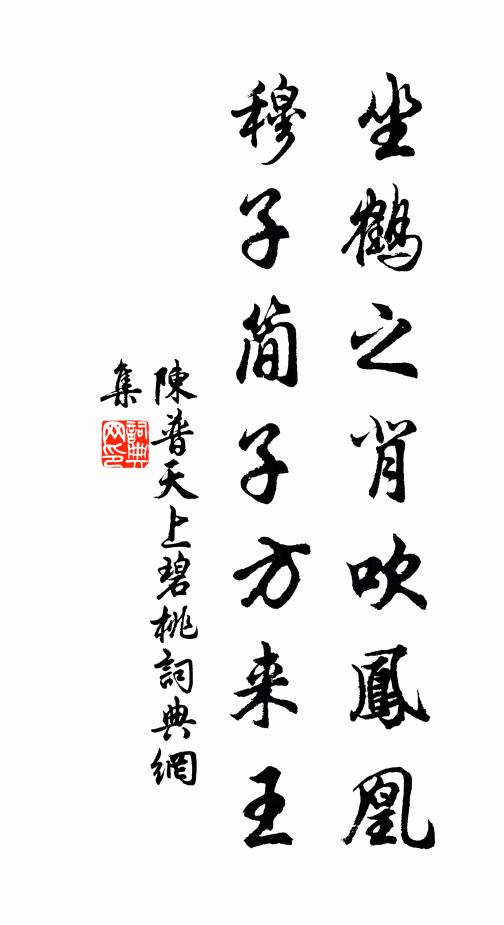 坐鶴之背吹鳳凰
穆子簡子方来王
陳普天上碧桃詞典網
集
詞典网印